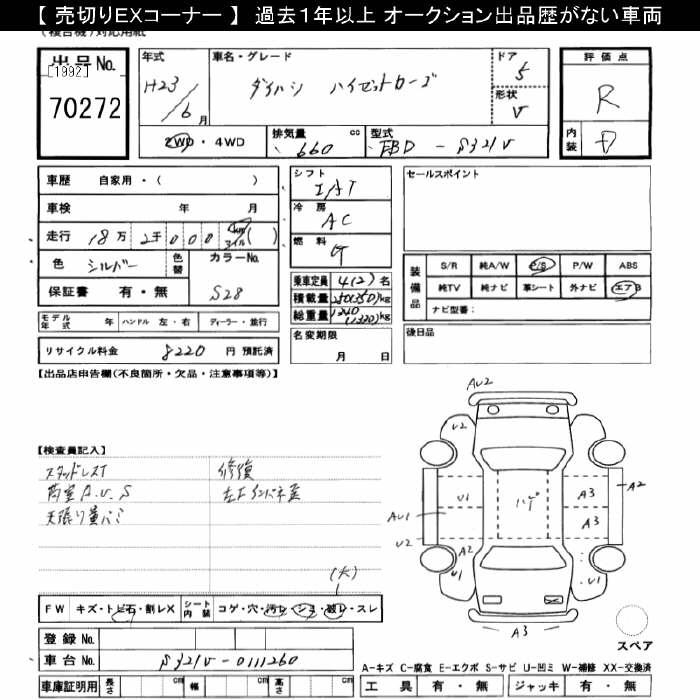 【 売切りEXコーナー 】 過去1年以上 オークション出品歴がない車両
(複合機)対応用紙
出品No.
[1992]
70272
年式
H23/6月
車名・グレード
ダイハツ ハイゼットカーゴ
ドア
5
形状
V
評価点
R
内装
D
2WD・4WD
排気量 cc
660
型式
EBD - S321V
車歴 自家用・( )
車検 年 月
走行 18万 2千 0 0 0 km マイル ( )
色 シルバー
色替
カラーNo.
S28
保証書 有・無
シフト
IAT
冷房
AC
燃料
G
セールスポイント
装備品
S/R 純A/W P/S P/W ABS
純TV 純ナビ 革シート 外ナビ エアB
ナビ型番：
乗車定員 4(2)名
積載量 250(350)kg
総重量 kg
モデル年式 年 ハンドル 左・右 ディーラー・並行
名変期限
月 日
後日品
リサイクル料金 8220 円 預託済
【出品店申告欄(不良箇所・欠品・注意事項等)】
【検査員記入】
スタッドレスT
荷室A.U.S
天張り
修復
左Fインパネ
AU2
U2
U1
ハゲ
A3
A2
AU1
A3
U2
A2
U1
U1
A3
(大)
FW キズ・トビ石・割レX
シート内装 コゲ・穴・汚レ・シミ・破レ・スレ
登録No.
車台No. S321V-0111260
スペア
A-キズ C-腐食 E-エクボ S-サビ U-凹ミ W-補修 XX-交換済
車庫証明用 長さ cm 幅 cm 高さ cm
工具 有・無 ジャッキ 有・無